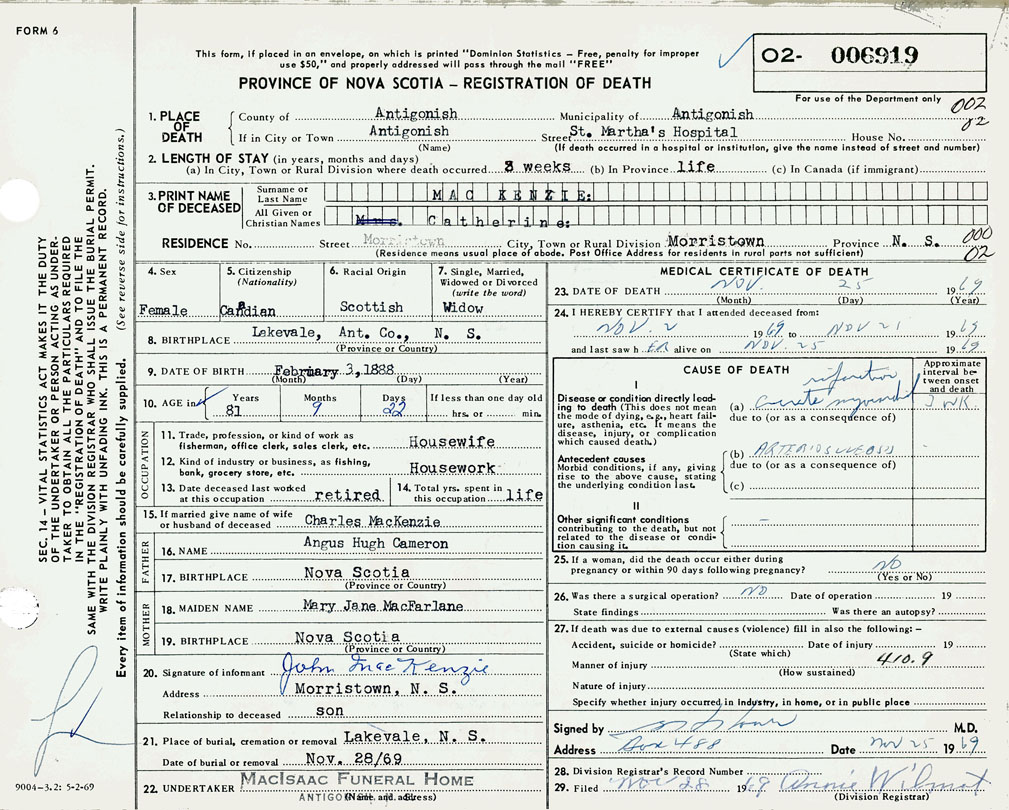 FORM 6
This form, if placed in an envelope, on which is printed "Dominion Statistics – Free, penalty for improper
use $50," and properly addressed will pass through the mail "FREE"
PROVINCE OF NOVA SCOTIA – REGISTRATION OF DEATH
02- 006919
For use of the Department only
002
02
1. PLACE OF DEATH
County of Antigonish Municipality of Antigonish
If in City or Town Antigonish Street St. Martha's Hospital House No.
(Name) (If death occurred in a hospital or institution, give the name instead of street and number)
2. LENGTH OF STAY (in years, months and days)
(a) In City, Town or Rural Division where death occurred 3 weeks (b) In Province life (c) In Canada (if immigrant)
3. PRINT NAME OF DECEASED
Surname or Last Name MAC KENZIE:
All Given or Christian Names Mrs. Catherine:
RESIDENCE No. Street Morristown City, Town or Rural Division Morristown Province N. S.
(Residence means usual place of abode. Post Office Address for residents in rural parts not sufficient)
000
02
4. Sex
Female
5. Citizenship
(Nationality)
Canadian
6. Racial Origin
Scottish
7. Single, Married,
Widowed or Divorced
(write the word)
Widow
8. BIRTHPLACE Lakevale, Ant. Co., N. S.
(Province or Country)
9. DATE OF BIRTH February 3, 1888
(Month) (Day) (Year)
10. AGE in Years Months Days If less than one day old
81 9 22 hrs. or min.
OCCUPATION
11. Trade, profession, or kind of work as
fisherman, office clerk, sales clerk, etc. Housewife
12. Kind of industry or business, as fishing,
bank, grocery store, etc. Housework
13. Date deceased last worked
at this occupation retired
14. Total yrs. spent in
this occupation life
15. If married give name of wife
or husband of deceased Charles MacKenzie
FATHER
16. NAME Angus Hugh Cameron
17. BIRTHPLACE Nova Scotia
(Province or Country)
MOTHER
18. MAIDEN NAME Mary Jane MacFarlane
19. BIRTHPLACE Nova Scotia
(Province or Country)
20. Signature of informant John MacKenzie
Address Morristown, N. S.
Relationship to deceased son
21. Place of burial, cremation or removal Lakevale, N. S.
Date of burial or removal Nov. 28/69
22. UNDERTAKER MACISAAC FUNERAL HOME
ANTIGONISH
(Name and address)
MEDICAL CERTIFICATE OF DEATH
23. DATE OF DEATH NOV. 25 1969
(Month) (Day) (Year)
24. I HEREBY CERTIFY that I attended deceased from:
NOV. 2 1969 to NOV 21 1969
and last saw h ER alive on NOV. 25 1969
CAUSE OF DEATH
Approximate interval between onset and death
I
Disease or condition directly leading to death (This does not
mean the mode of dying, e.g., heart failure, asthenia, etc. It means the
disease, injury, or complication
which caused death.)
infarction
(a) myocardial 3 WK.
due to (or as a consequence of)
Antecedent causes
Morbid conditions, if any, giving
rise to the above cause, stating
the underlying condition last.
(b)
due to (or as a consequence of)
(c)
II
Other significant conditions
contributing to the death, but not
related to the disease or condition causing it. –
25. If a woman, did the death occur either during
pregnancy or within 90 days following pregnancy? NO
(Yes or No)
26. Was there a surgical operation? NO Date of operation 19
State findings Was there an autopsy?
27. If death was due to external causes (violence) fill in also the following: –
Accident, suicide or homicide? Date of injury 19
(State which)
410.9
Manner of injury
(How sustained)
Nature of injury
Specify whether injury occurred in industry, in home, or in public place
Signed by M.D.
Address Box 488 Date Nov 25 1969
28. Division Registrar's Record Number
29. Filed Nov 28 1969 Annie Wilmot
(Division Registrar)
SEC. 14 – VITAL STATISTICS ACT MAKES IT THE DUTY
OF THE UNDERTAKER OR PERSON ACTING AS UNDERTAKER
TO OBTAIN ALL THE PARTICULARS REQUIRED
IN THE "REGISTRATION OF DEATH" AND TO FILE THE
SAME WITH THE DIVISION REGISTRAR WHO SHALL ISSUE THE BURIAL PERMIT.
WRITE PLAINLY WITH UNFADING INK. THIS IS A PERMANENT RECORD.
Every item of information should be carefully supplied. (See reverse side for instructions.)
9004-3.2: 5-2-69